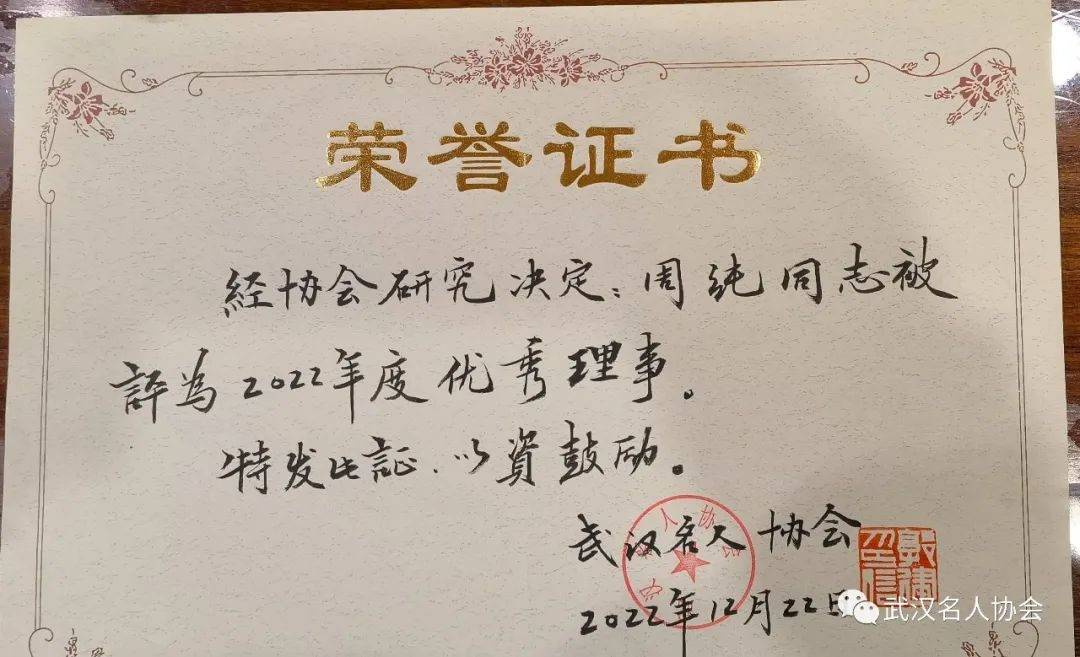 荣誉证书
经协会研究决定：周纯同志被
評為2022年度优秀理事。
特发此証.以資鼓励。
武汉名人协会
2022年12月22日
武汉名人协会